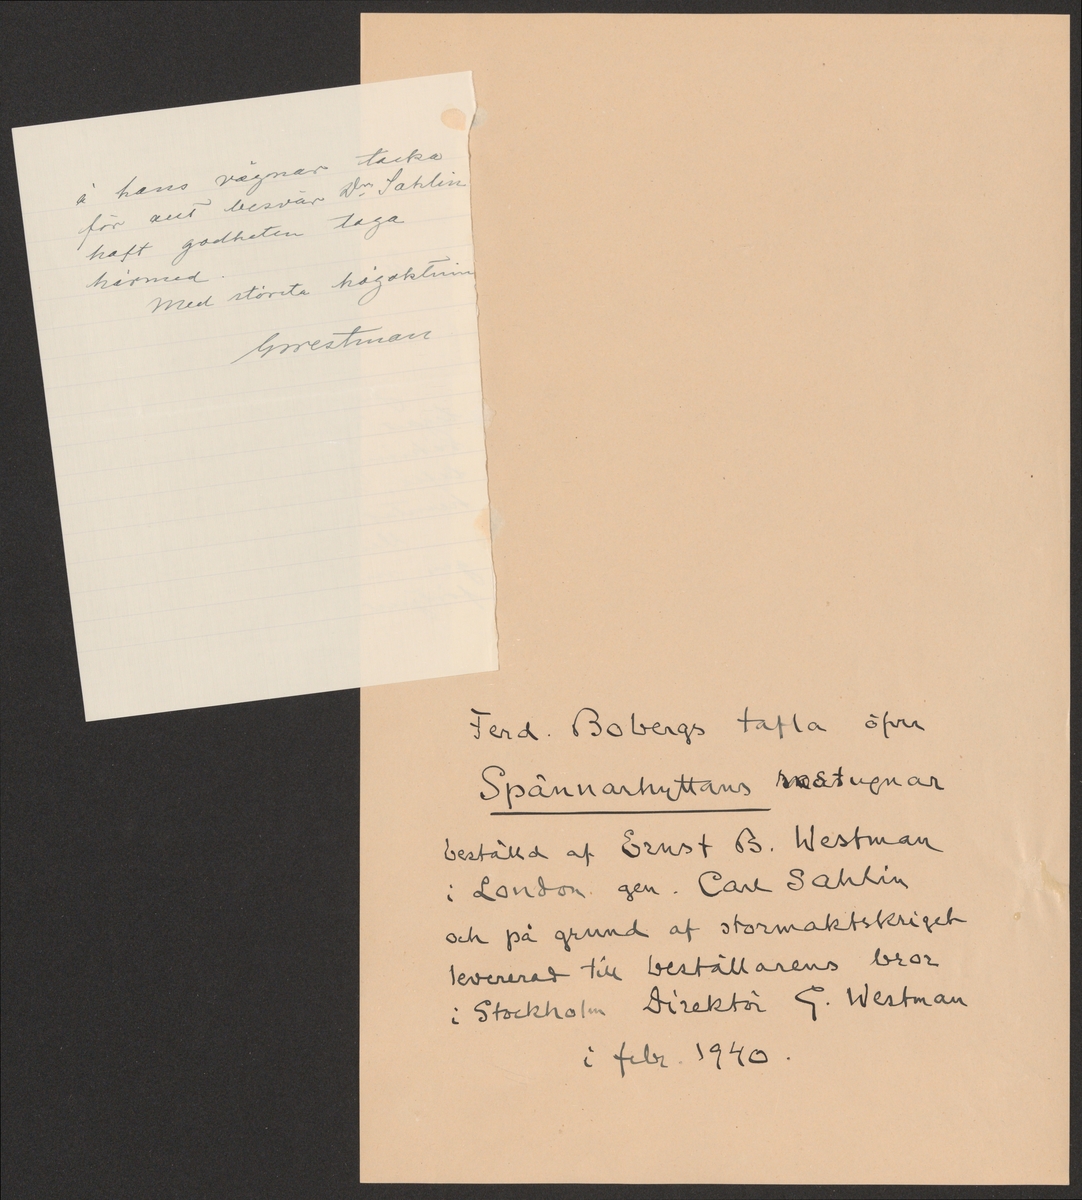 å hans vägnar tacka
för allt besvär Dr. Sahlin
haft godheten taga
härmed.
Med största högaktnin
GWestman
Ferd. Bobergs tafla öfver
Spännarhyttans rostugnar
beställd af Ernst B. Westman
i London gen. Carl Sahlin
och på grund af stormaktskriget
levererad till beställarens bror
i Stockholm Direktör G. Westman
i febr. 1940.